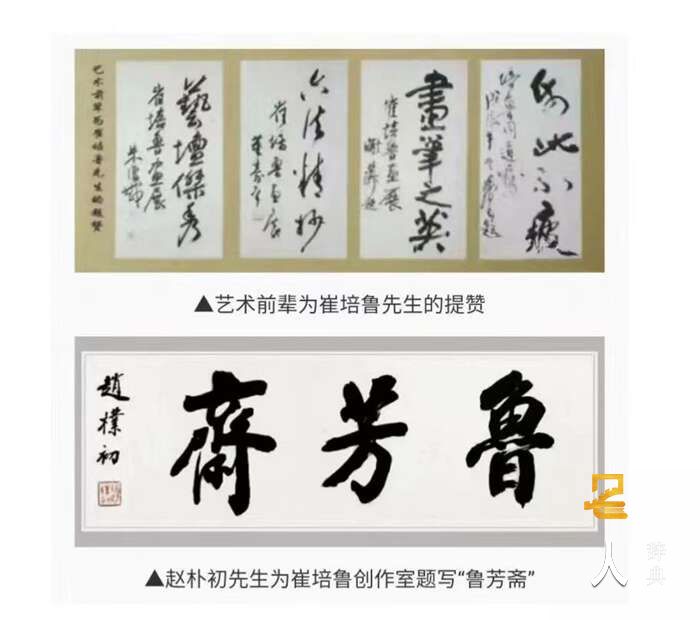 此不疲
畫筆之英
崔培鲁画展
六法精妙
崔培鲁画展
董寿平
藝壇傑秀
崔培鲁画展
艺术前辈为崔培鲁先生的题赞
▲艺术前辈为崔培鲁先生的提赞
魯芳齋
趙樸初
▲赵朴初先生为崔培鲁创作室题写“鲁芳斋”
名人
辞典